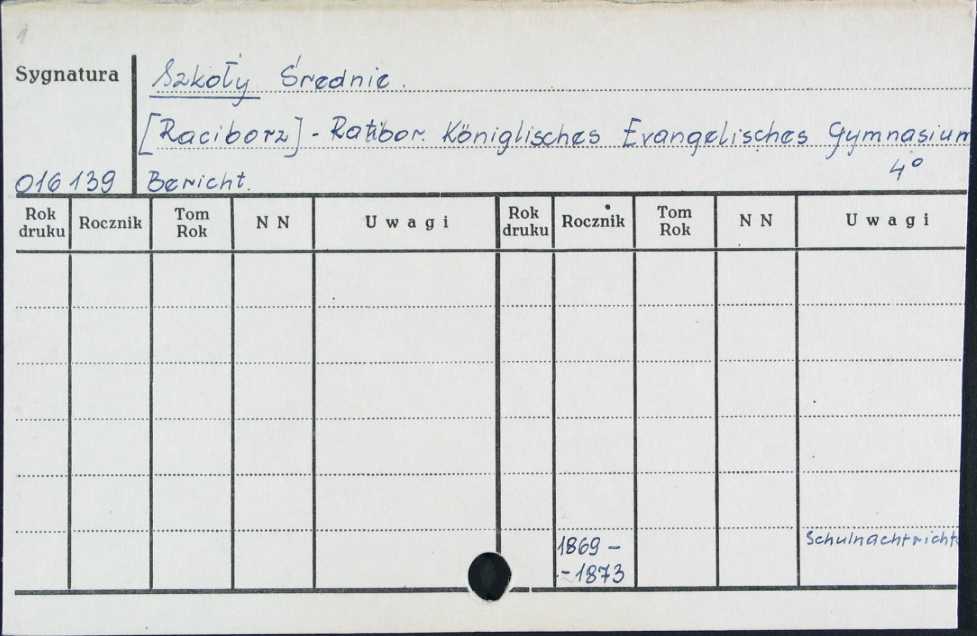 1
Sygnatura
Szkoły Średnie.
[Raciborz] - Ratibor. Königlisches Evangelisches Gymnasium
4°
016139 Bericht.
Rok druku Rocznik Tom Rok N N Uwagi Rok druku Rocznik Tom Rok N N Uwagi
1869 - Schulnachtricht
- 1873